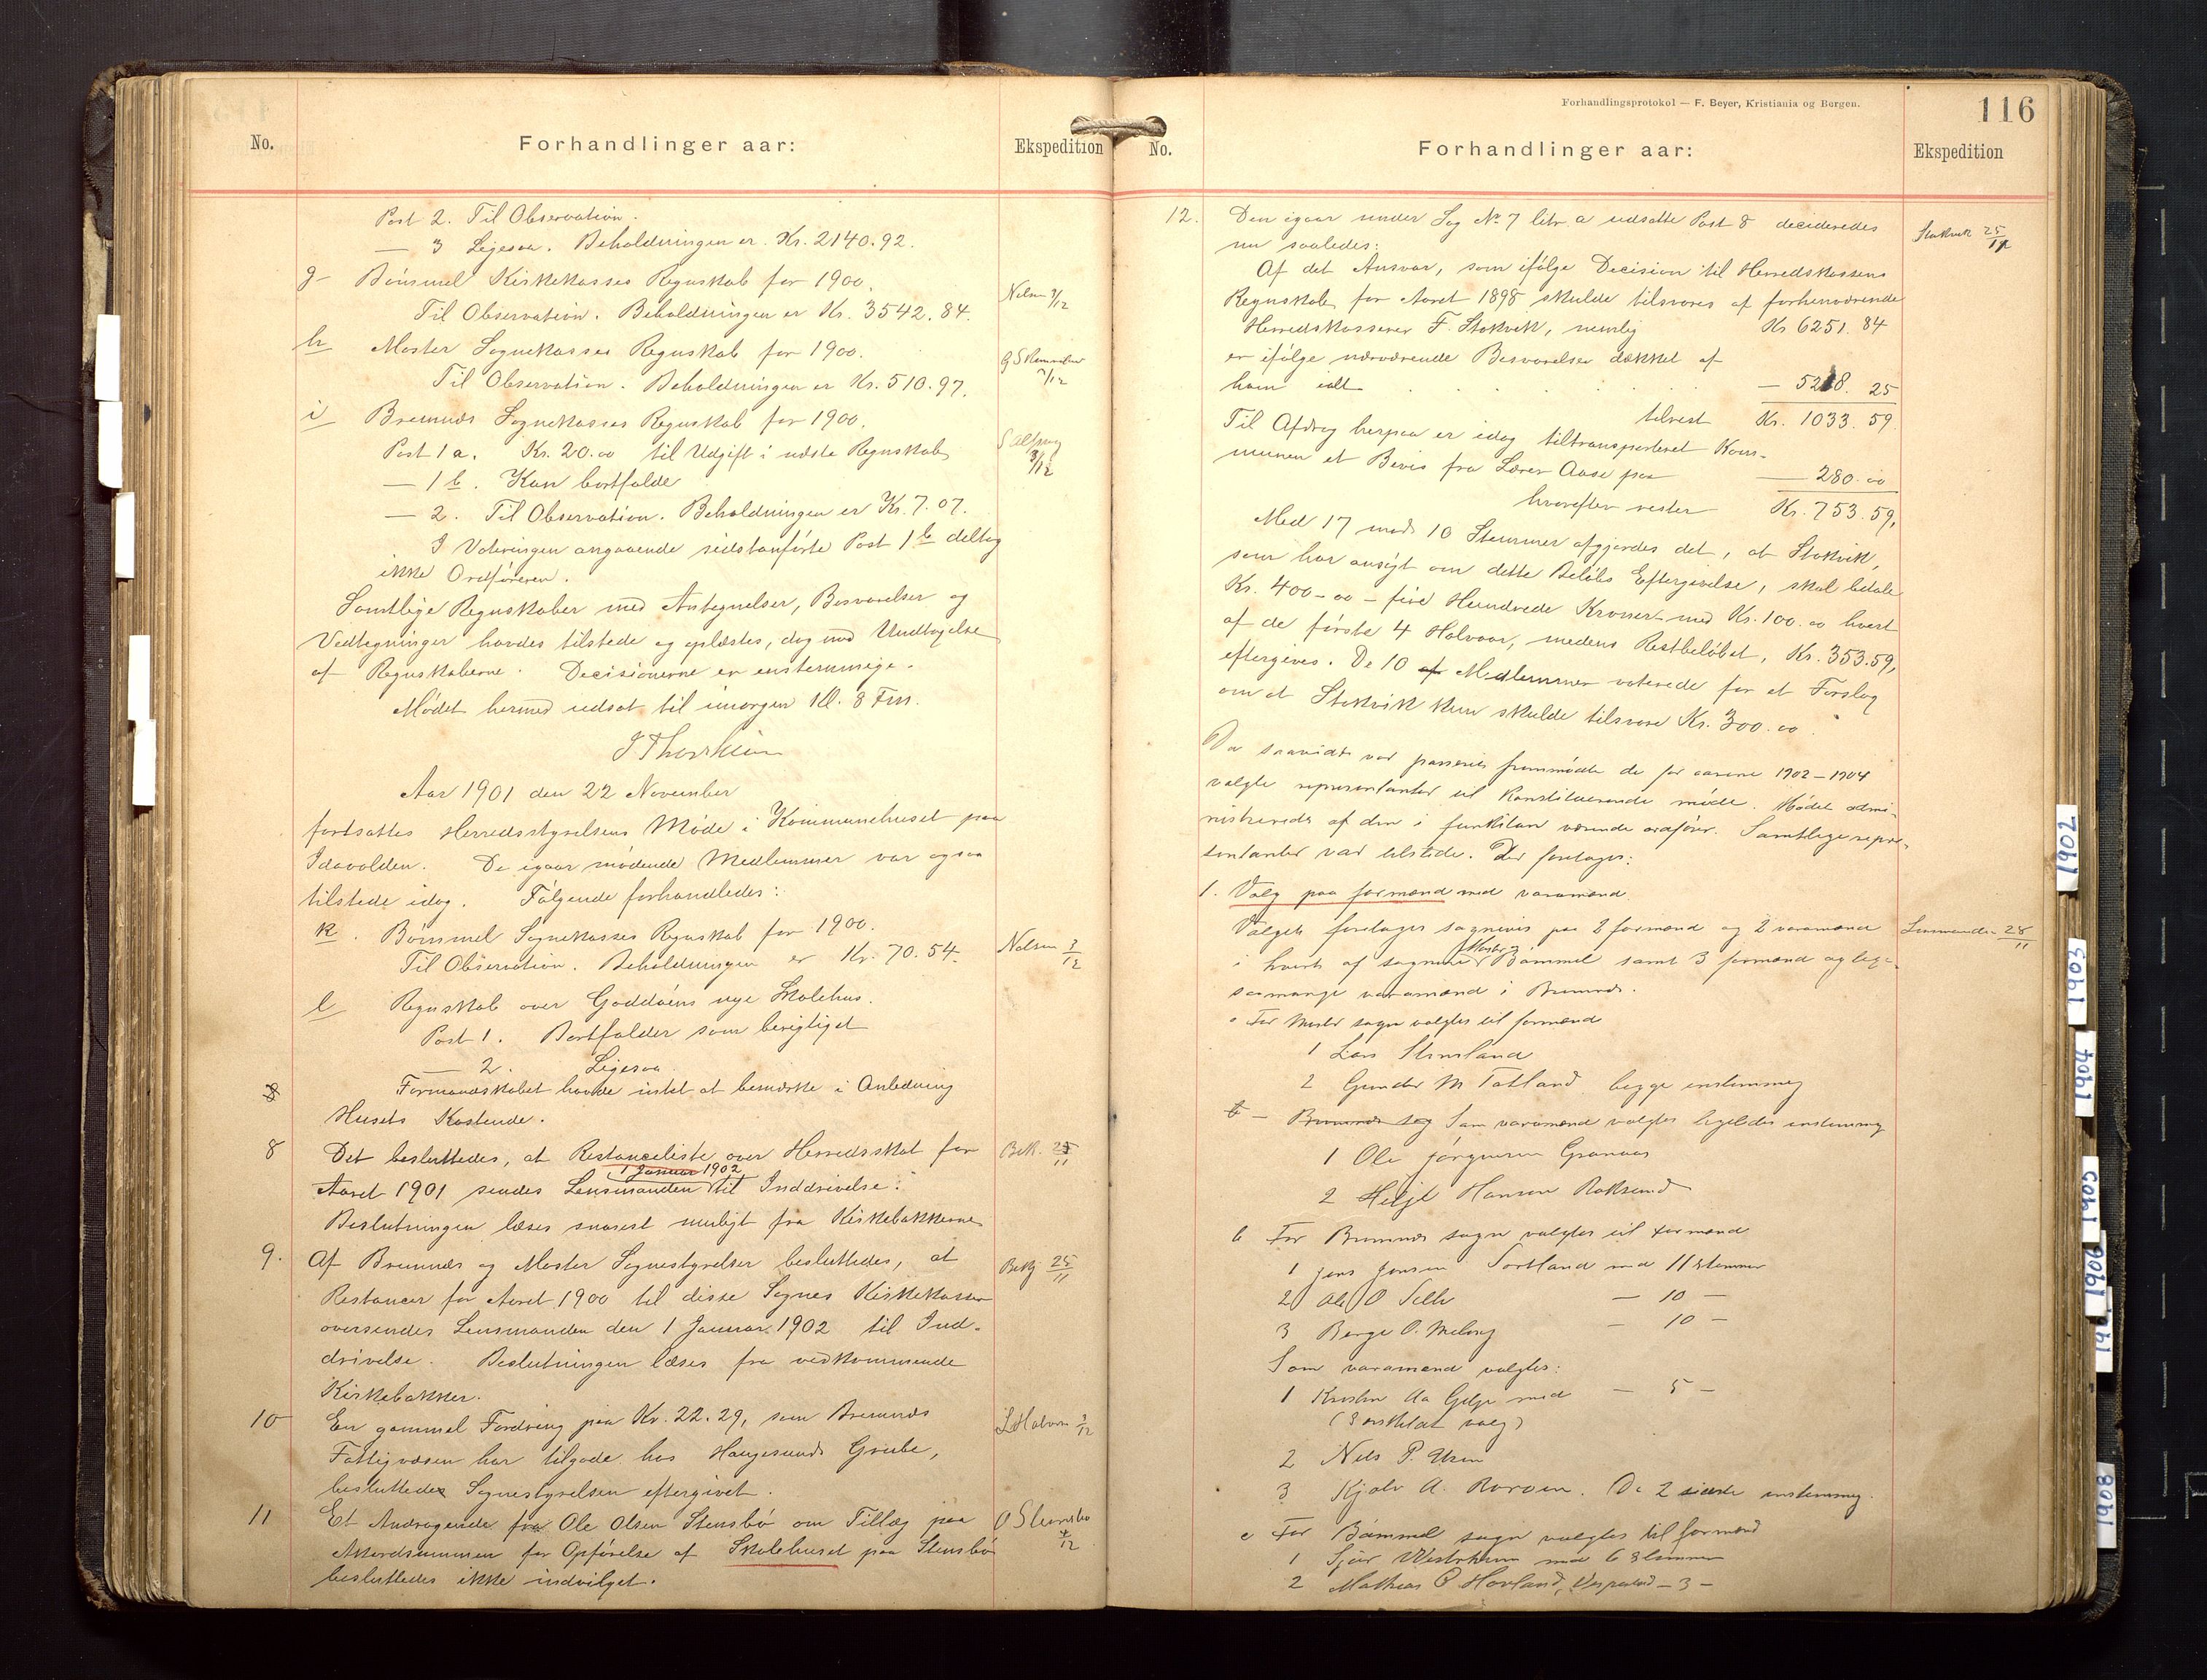 No.
Forhandlinger aar:
Ekspedition
Post 2. Til Observation.
— 3 Ligesaa. Beholdningen er Kr. 2140.92.
g Bømmel Kirkekasses Regnskab for 1900.
Til Observation. Beholdningen er Kr. 3542.84.
Nelsen 3/12
h Moster Sognekasses Regnskab for 1900.
Til Observation. Beholdningen er Kr. 510.97.
i Bremnæs Sognekasses Regnskab for 1900.
Post 1 a. Kr. 20.00 til Udgift i næste Regnskab
3/12
— 1 b. Kan bortfalde
— 2. Til Observation. Beholdningen er Kr. 7.07.
I Voteringen angaaende sidstanførte Post 1 b deltog
ikke Ordføreren.
Samtlige Regnskaber med Antegnelser, Besvarelser og
Vedtegninger havdes tilstede og oplæstes, dog med Undtagelse
af Regnskaberne. Decisionerne er enstemmige.
Mødet hermed udsat til imorgen Kl. 8 Fm.
Aar 1901 den 22 November
fortsattes Herredsstyrelsens Møde i Kommunehuset paa
Idavolden. De igaar mødende Medlemmer var ogsaa
tilstede idag. Følgende forhandledes:
k. Bømmel Sognekasses Regnskab for 1900.
Til Observation. Beholdningen er Kr. 70.54.
Nelsen 3/12
l Regnskab over Goddøens nye Skolehus.
Post 1. Bortfalder som berigtiget
— 2. Ligesaa.
Formandskabet havde intet at bemærke i Anledning
Husets Kostende.
8 Det besluttedes, at Restanceliste over Herredsskat for
Bek. 25/11
1 Januar 1902
Aaret 1901 sendes Lensmanden til Inddrivelse.
Beslutningen læses snarest muligt fra Kirkebakkerne
9. Af Bremnæs og Moster Sognestyrelser besluttedes, at
Bekj 25/11
Restancer for Aaret 1900 til disse Sognes Kirkekasser
oversendes Lensmanden den 1 Januar 1902 til Ind-
drivelse. Beslutningen læses fra vedkommende
Kirkebakker.
10 En gammel Fordring paa Kr. 22.29, som Bremnæs
3/12
Fattigvæsen har tilgode hos Haugesunds Grube,
besluttedes Sognestyrelsen eftergivet.
11 Et Andragende fra Ole Olsen Stensbø om Tillæg paa
O Stensbø
Akkordsummen for Opførelse af Skolehuset paa Stensbø
besluttedes ikke indvilget.
Forhandlingsprotokol — F. Beyer, Kristiania og Bergen.
116
No.
Forhandlinger aar:
Ekspedition
12. Den igaar under Sag No 7 litr. a udsatte Post 8 decideredes
Stokvik 25/11
nu saaledes:
Af det Ansvar, som ifølge Decision til Herredskassens
Regnskab for Aaret 1898 skulde tilsvares af forhenværende
Herredskasserer F. Stokvik, nemlig Kr 6251.84
er ifølge nærværende Besvarelser dækket af
ham ialt . . . . . — 5218.25
tilrest Kr. 1033.59
Til Afdrag herpaa er idag tiltransporteret Kom-
munen et Bevis fra Lærer Aase paa — 280.00
hvorefter rester Kr. 753.59,
Med 17 mod 10 Stemmer afgjordes det, at Stokvik,
som har ansøgt om dette Beløbs Eftergivelse, skal betale
Kr. 400-00 - fire Hundrede Kroner - med Kr. 100.00 hvert
af de første 4 Halvaar, medens Restbeløbet, Kr. 353.59,
eftergives. De 10 af Medlemmer voterede for et Forslag
om at Stokvik kun skulde tilsvare Kr. 300.00.
Da saavidt var passeret fremmødte de for aarene 1902-1904
valgte repræsentanter til konstituerende møde. Mødet admi-
nistreredes af den i funktion værende ordfører. Samtlige repræ-
sentanter var tilstede. Der foretages:
1. Valg paa formænd med varamænd.
Valget foretages sognevis paa 2 formænd og 2 varamænd
Lensmanden 28/11
i hvert af sognene Moster og Bømmel samt 3 formænd og lige-
saamange varamænd i Bremnæs.
a For Moster sogn valgtes til formænd
1 Lars Stensland
2 Gunder M Totland begge enstemmig
b — Bremnæs sog Som varamænd valgtes ligeledes enstemmig
1 Ole Jørgensen Granaas
2 Helje Hansen Roksund
b For Bremnæs sogn valgtes til formænd
1 Jens Jensen Sortland med 11 stemmer
2 Ole O Selle — 10 —
3 Berge O. Meling — 10 —
Som varamænd valgtes:
1 Kristen Aa Gilje med — 5 —
2 Nels P.
3 Kjølv A. De 2 sidste enstemmig.
c For Bømmel sogn valgtes til formænd
1 Sjur Vestrheim med 6 stemmer
2 Mathias P. Hovland, — 3 —
1902
1903
1904
1905
1906
1908